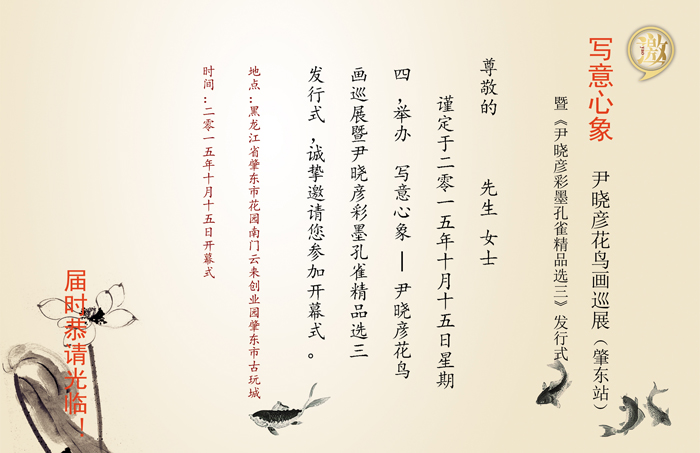 邀
写意心象
尹晓彦花鸟画巡展（肇东站）
暨《尹晓彦彩墨孔雀精品选三》发行式
尊敬的 先生 女士
谨定于二零一五年十月十五日星期
四，举办 写意心象 — 尹晓彦花鸟
画巡展暨尹晓彦彩墨孔雀精品选三
发行式，诚挚邀请您参加开幕式。
地点：黑龙江省肇东市花园南门云来创业园肇东市古玩城
时间：二零一五年十月十五日开幕式
届时恭请光临！